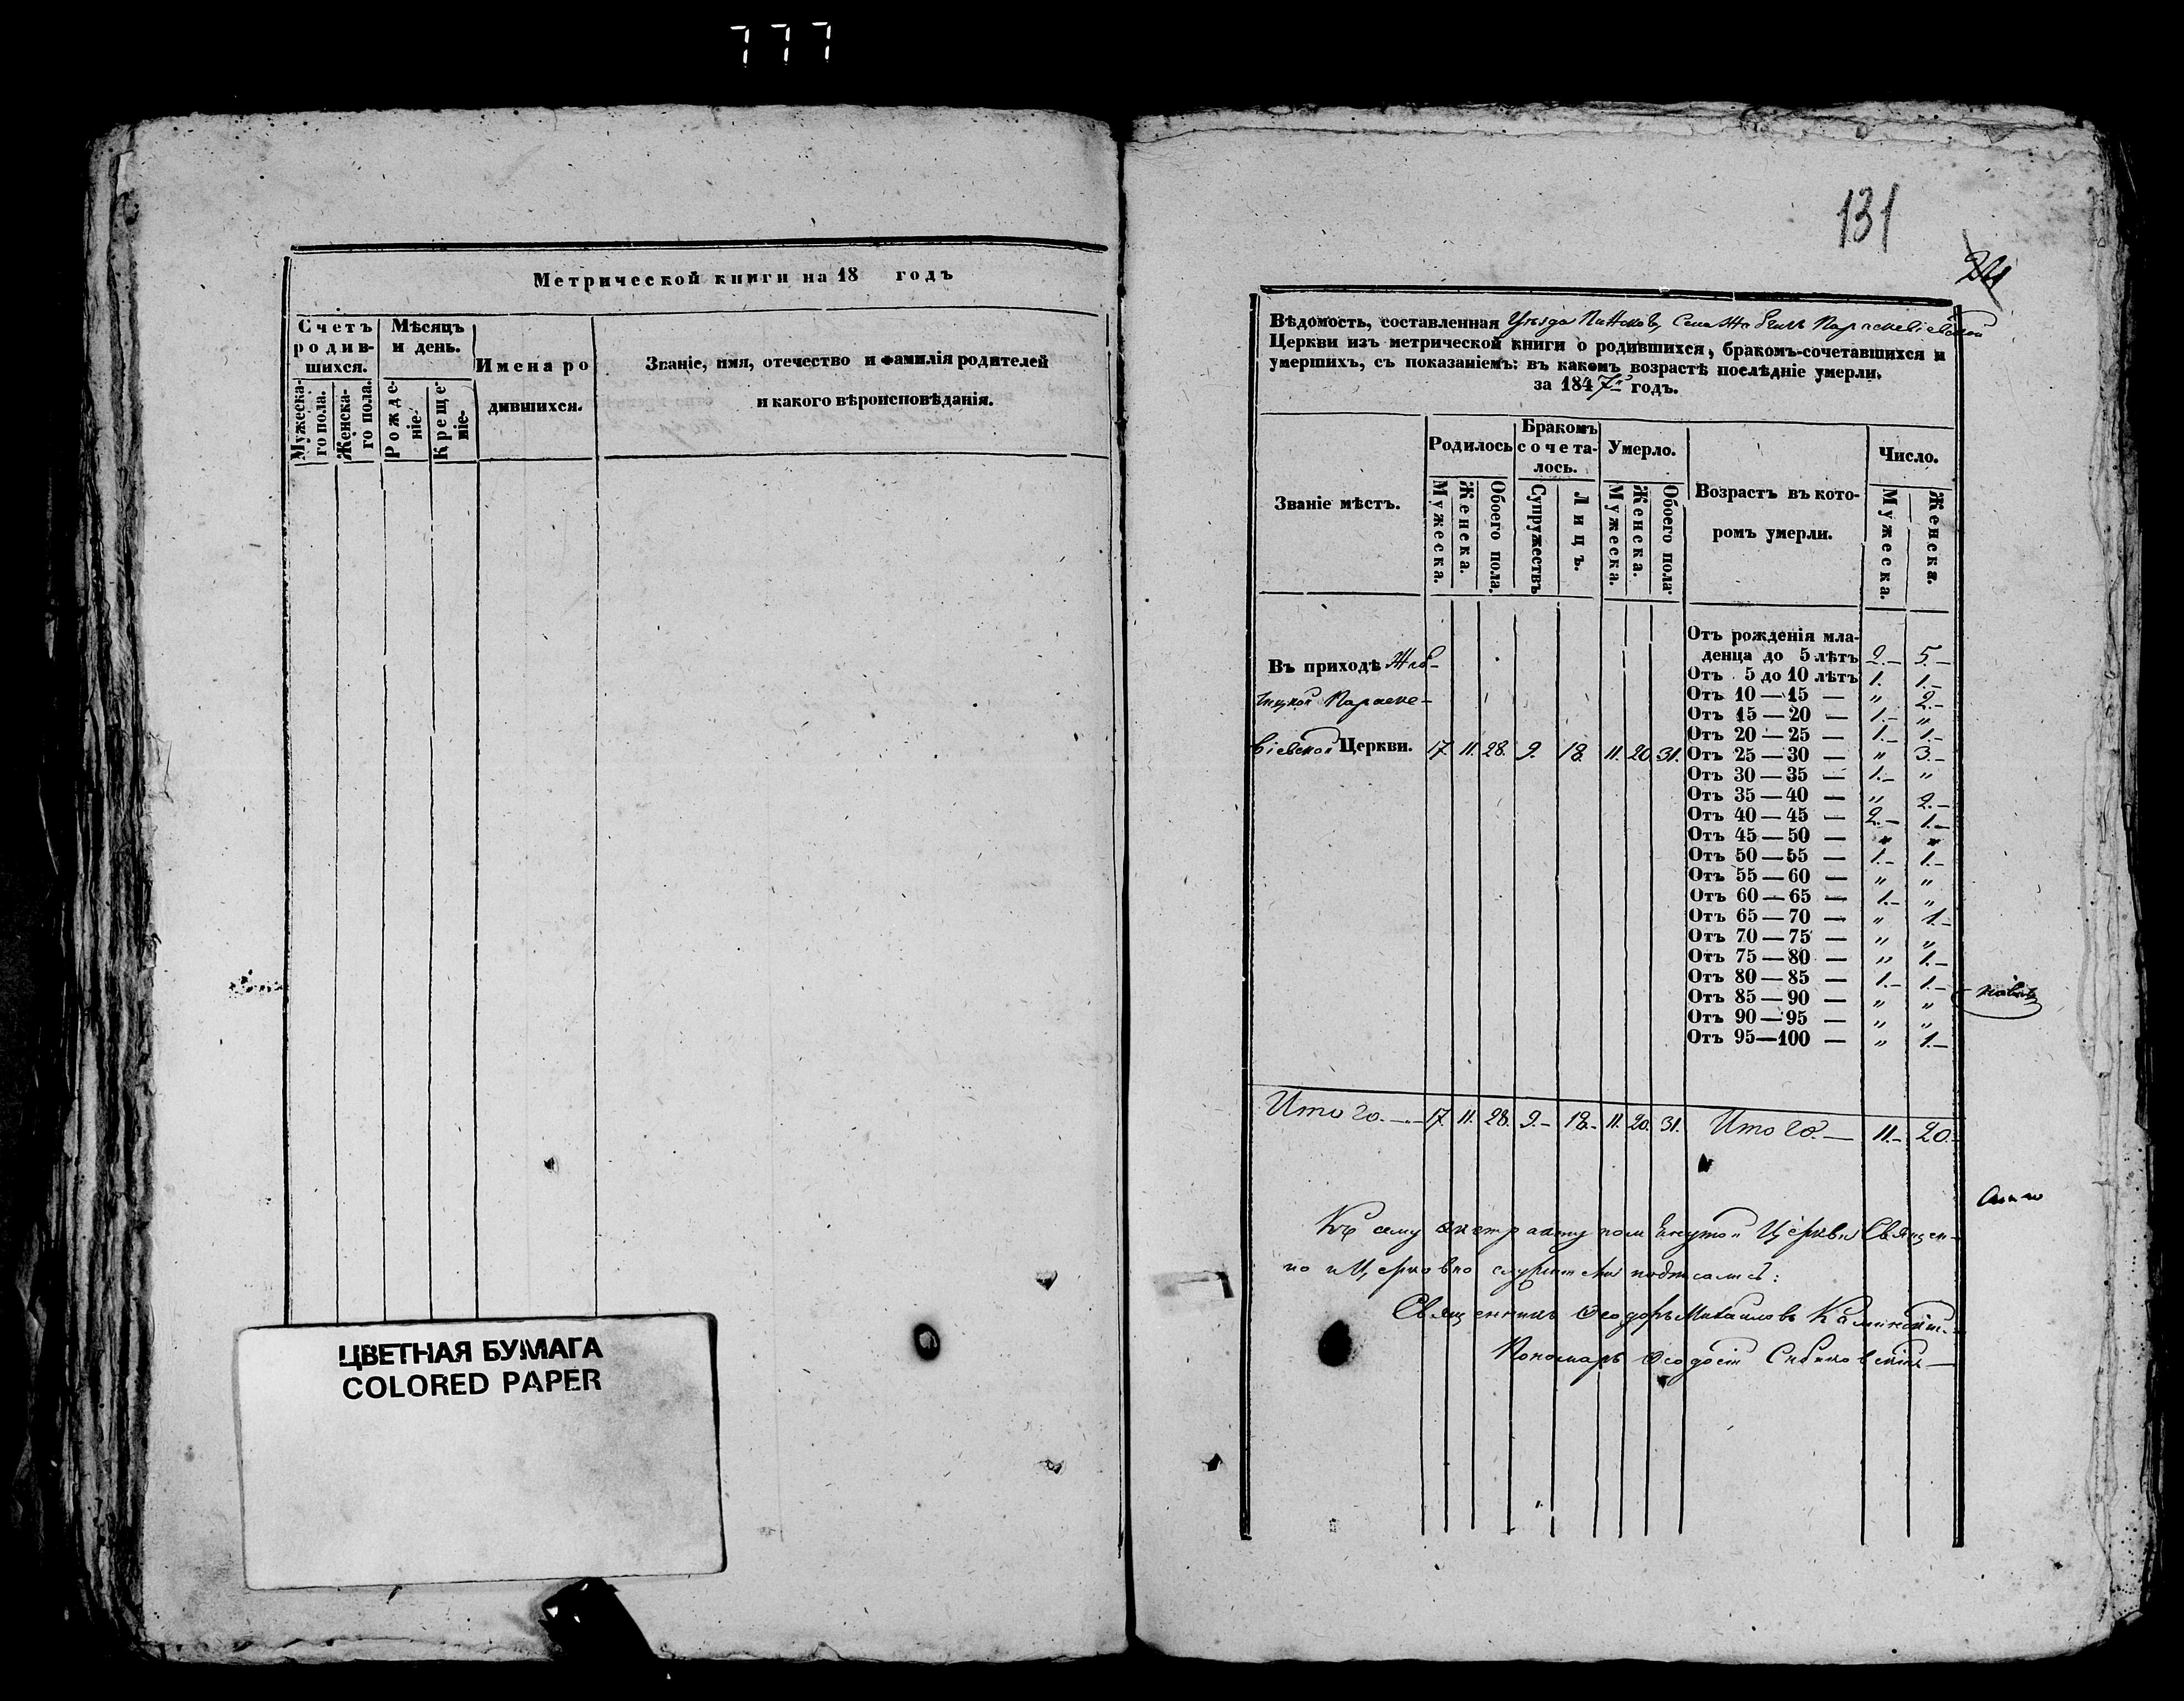 777
Метрической книги на 18 годъ
Счетъ родив-шихся.
Мѣсяцъ и день.
Имена ро
дившихся.
Званіе, имя, отечество и фамилія родителей
и какого вѣроисповѣданія.
Мужеска-го пола.
Женска-го пола.
Рожде-ніе
Креще-ніе.
ЦВЕТНАЯ БУМАГА
COLORED PAPER
131
Вѣдомость, составленная Уѣзда Пинскаго Села Парасковіевской
Церкви изъ метрической книги о родившихся, бракомъ-сочетавшихся и
умершихъ, съ показаніемъ: въ какомъ возрастѣ послѣдніе умерли,
за 1847 годъ.
Званіе мѣстъ.
Родилось
Бракомъ сочета-лось.
Умерло.
Возрастъ въ кото-
ромъ умерли.
Число.
Мужеска.
Женска.
Обоего пола.
Супружествъ
Лицъ.
Мужеска.
Женска.
Обоего пола
Мужеска.
Женска.
Въ приходѣ
Параске-
віевской Церкви. 17. 11. 28. 9. 18. 11. 20. 31.
Отъ рожденія мла-
денца до 5 лѣтъ 2.— 5.—
Отъ 5 до 10 лѣтъ 1. 1.—
Отъ 10—15 — " 2.—
Отъ 15—20 — 1.— "
Отъ 20—25 — 1.— 1.—
Отъ 25—30 — " 3.—
Отъ 30—35 — 1.— "
Отъ 35—40 — " 2.—
Отъ 40—45 — 2.— 1.—
Отъ 45—50 — " "
Отъ 50—55 — 1.— 1.—
Отъ 55—60 — " "
Отъ 60—65 — 1.— "
Отъ 65—70 — " 1.—
Отъ 70—75 — " "
Отъ 75—80 — " 1.—
Отъ 80—85 — 1.— 1.—
Отъ 85—90 — " "
Отъ 90—95 — " "
Отъ 95—100 — " 1.—
Итого.— 17. 11. 28. 9.— 18.— 11. 20. 31. Итого.— 11.— 20.—
Къ сему экстракту помянутой Церкви Священ-
но и Церковно служители подписались:
Священникъ Ѳеодоръ Михаиловъ
Пономарь Ѳеодосій